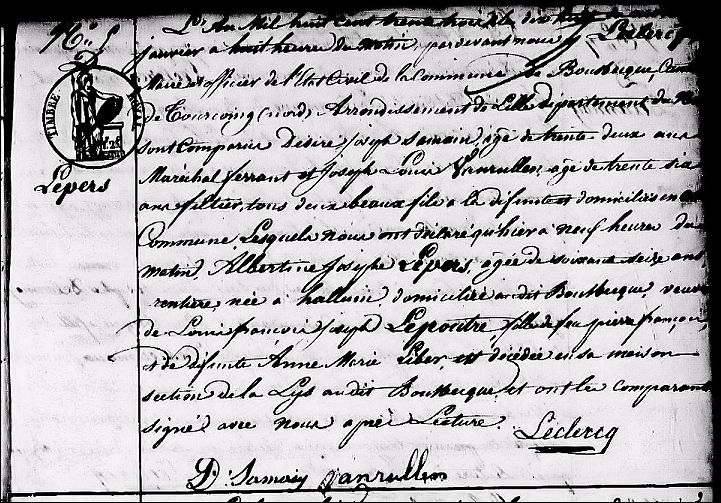 N.° 5
TIMBRE ROYAL
Lepers
L'An Mil huit cent trente trois le dix huit
janvier à huit heure du Matin, pardevant nous Leclercq
Maire et officier de l'Etat Civil de la Commune de Bousbecque, Canton
de Tourcoing (nord) Arrondissement de Lille département du
sont Comparu Désiré Joseph Samain, agé de trente deux ans
Maréchal ferrant et Joseph Louis Vanrullen, agé de trente six
ans filtier, tous deux beaux fils a la défunte et domiciliés en
Commune, Lesquels nous ont déclaré qu'hier a neuf heure du
matin, Albertine Josephe Lepers, agée de soixante seize ans,
rentiere, née a halluin, domiciliée au dit Bousbecque, veuve
de Louis françois Joseph Lepoutre, fille de feu pierre françois,
et de défunte Anne Marie Liber, est décédée en sa maison
section de la Lys au dit Bousbecque, et ont les comparants
signé avec nous après Lecture.
Leclercq
D. Samain Vanrullen